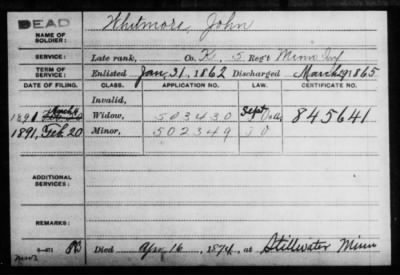 DEAD
Whitmore, John
NAME OF SOLDIER:
SERVICE: Late rank, Co. K, 5 Reg't Minn Inf
TERM OF SERVICE: Enlisted Jan. 31, 1862 Discharged March 1865
DATE OF FILING. CLASS. APPLICATION NO. LAW. CERTIFICATE NO.
Invalid,
1891 March 4 Widow, 503430 Sept 845641
1891, Feb. 20 Minor, 502349
ADDITIONAL SERVICES:
REMARKS:
Died Apr 16, 1874, at Stillwater Minn